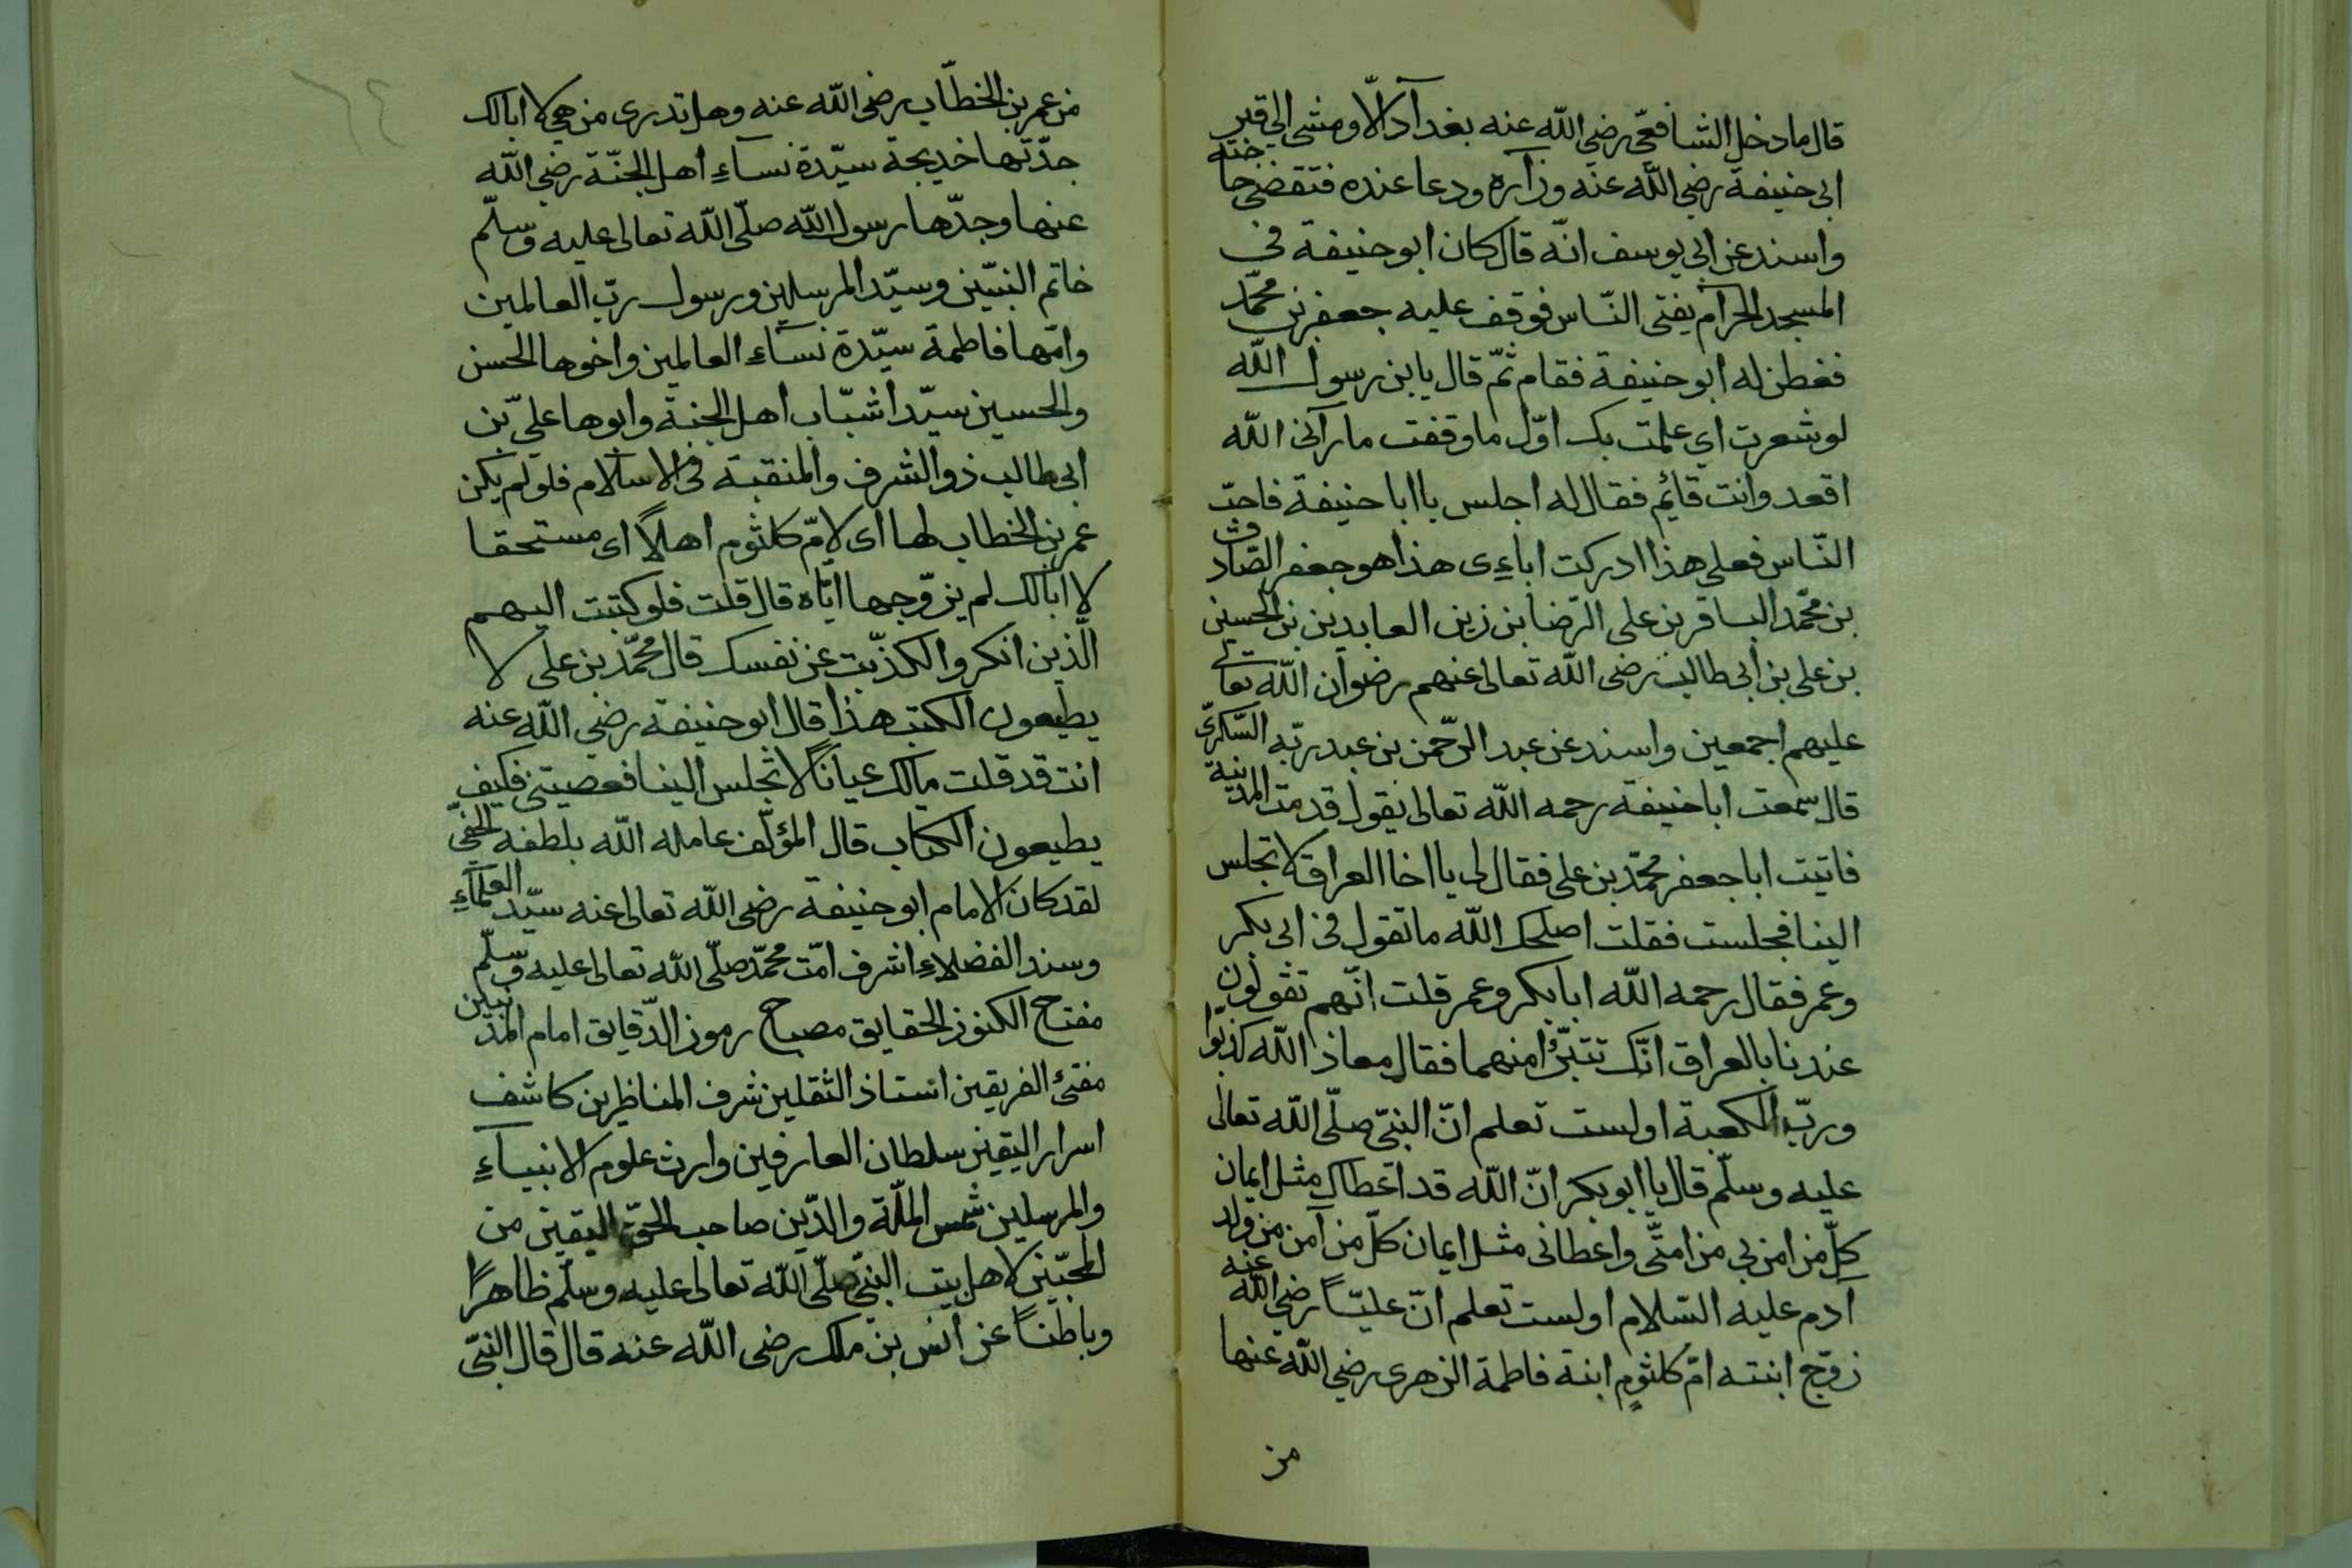 قال ما دخل الشافعيّ رضي الله عنه بغدآد الّا ومشى الى قبر
ابى حنيفة رضي الله عنه وزآره ودعا عنده فتقضى حاجته
واسند عن ابى يوسف انّه قال كان ابو حنيفة فى
المسجد الحرآم يفتى النّاس فوقف عليه جعفر بن محمّد
ففطن له ابو حنيفة فقام ثمّ قال يا بن رسول الله
لو شعرت اي علمت بك اوّل ما وقفت ما رآنى الله
اقعد وانت قائم فقال له اجلس يا ابا حنيفة فاجب
النّاس فعلى هذا ادركت اباءى هذا هو جعفر الصّادق
بن محمّد الباقر بن على الرّضا بن زين العابدين بن الحسين
بن على بن ابى طالب رضى الله تعالى عنهم رضوان الله تعالى
عليهم اجمعين واسند عن عبد الرّحمن بن عبد ربّه السّكرىّ
قال سمعت ابا حنيفة رحمه الله تعالى يقول قدمت المدينة
فاتيت ابا جعفر محمّد بن على فقال لى يا اخا العراق لا تجلس
الينا فجلست فقلت اصلحك الله ما تقول فى ابى بكر
وعمر فقال رحمه الله ابا بكر وعمر قلت انّهم تقولون
عندنا بالعراق انّك تتبرّؤا منهما فقال معاذ الله كذبوا
وربّ الكعبة اولست تعلم انّ النبىّ صلّى الله تعالى
عليه وسلّم قال يا ابو بكر انّ الله قد اعطاك مثل ايمان
كلّ من امن بى من امتّى واعطانى مثل ايمان كلّ من آمن من ولد
آدم عليه السّلام اولست تعلم انّ عليّاً رضي الله عنه
زوّج ابنته امّ كلثوم ابنة فاطمة الزهرى رضي الله عنها
من
من عمر بن الخطّاب رضي الله عنه وهل تدرى من هي لا ابالك
جدّتها خديجة سيّدة نسآء اهل الجنّة رضي الله
عنها وجدّها رسول الله صلّى الله تعالى عليه وسلّم
خاتم النبيّين وسيّد المرسلين ورسول ربّ العالمين
وامّها فاطمة سيّدة نسآء العالمين واخوها الحسن
والحسين سيّدا شبّاب اهل الجنة وابوها علىّ بن
ابى طالب ذو الشرف والمنقبة فى الاسلام فلو لم يكن
عمر بن الخطاب لها اى لامّ كلثوم اهلاً اى مستحقا
لا ابالك لم يزوّجها ايّاه قال قلت فلو كتبت اليهم
الّذين انكروا لكذّبت عن نفسك قال محمّد بن على لا
يطيعون الكتب هذا قال ابو حنيفة رضي الله عنه
انت قد قلت مالك عياناً لا تجلس الينا فعصيتنى فكيف
يطيعون الكتاب قال المؤلّف عامله الله بلطفه الخفىّ
لقد كان الامام ابو حنيفة رضى الله تعالى عنه سيّد العلمآء
وسند الفضلاء اشرف امّت محمّد صلّى الله تعالى عليه وسلّم
مفتح الكنوز الحقايق مصباح رموز الدّقايق امام المذنبين
مفتئ الفريقين استاذ الثقلين شرف المناظرين كاشف
اسرار اليقين سلطان العارفين وارث علوم الانبيآء
والمرسلين شمس الملّة والدّين صاحب الحقّ اليقين من
المحبّين لاهل بيت النبىّ صلّى الله تعالى عليه وسلّم ظاهراً
وباطناً عن انس بن ملك رضى الله عنه قال قال النبىّ